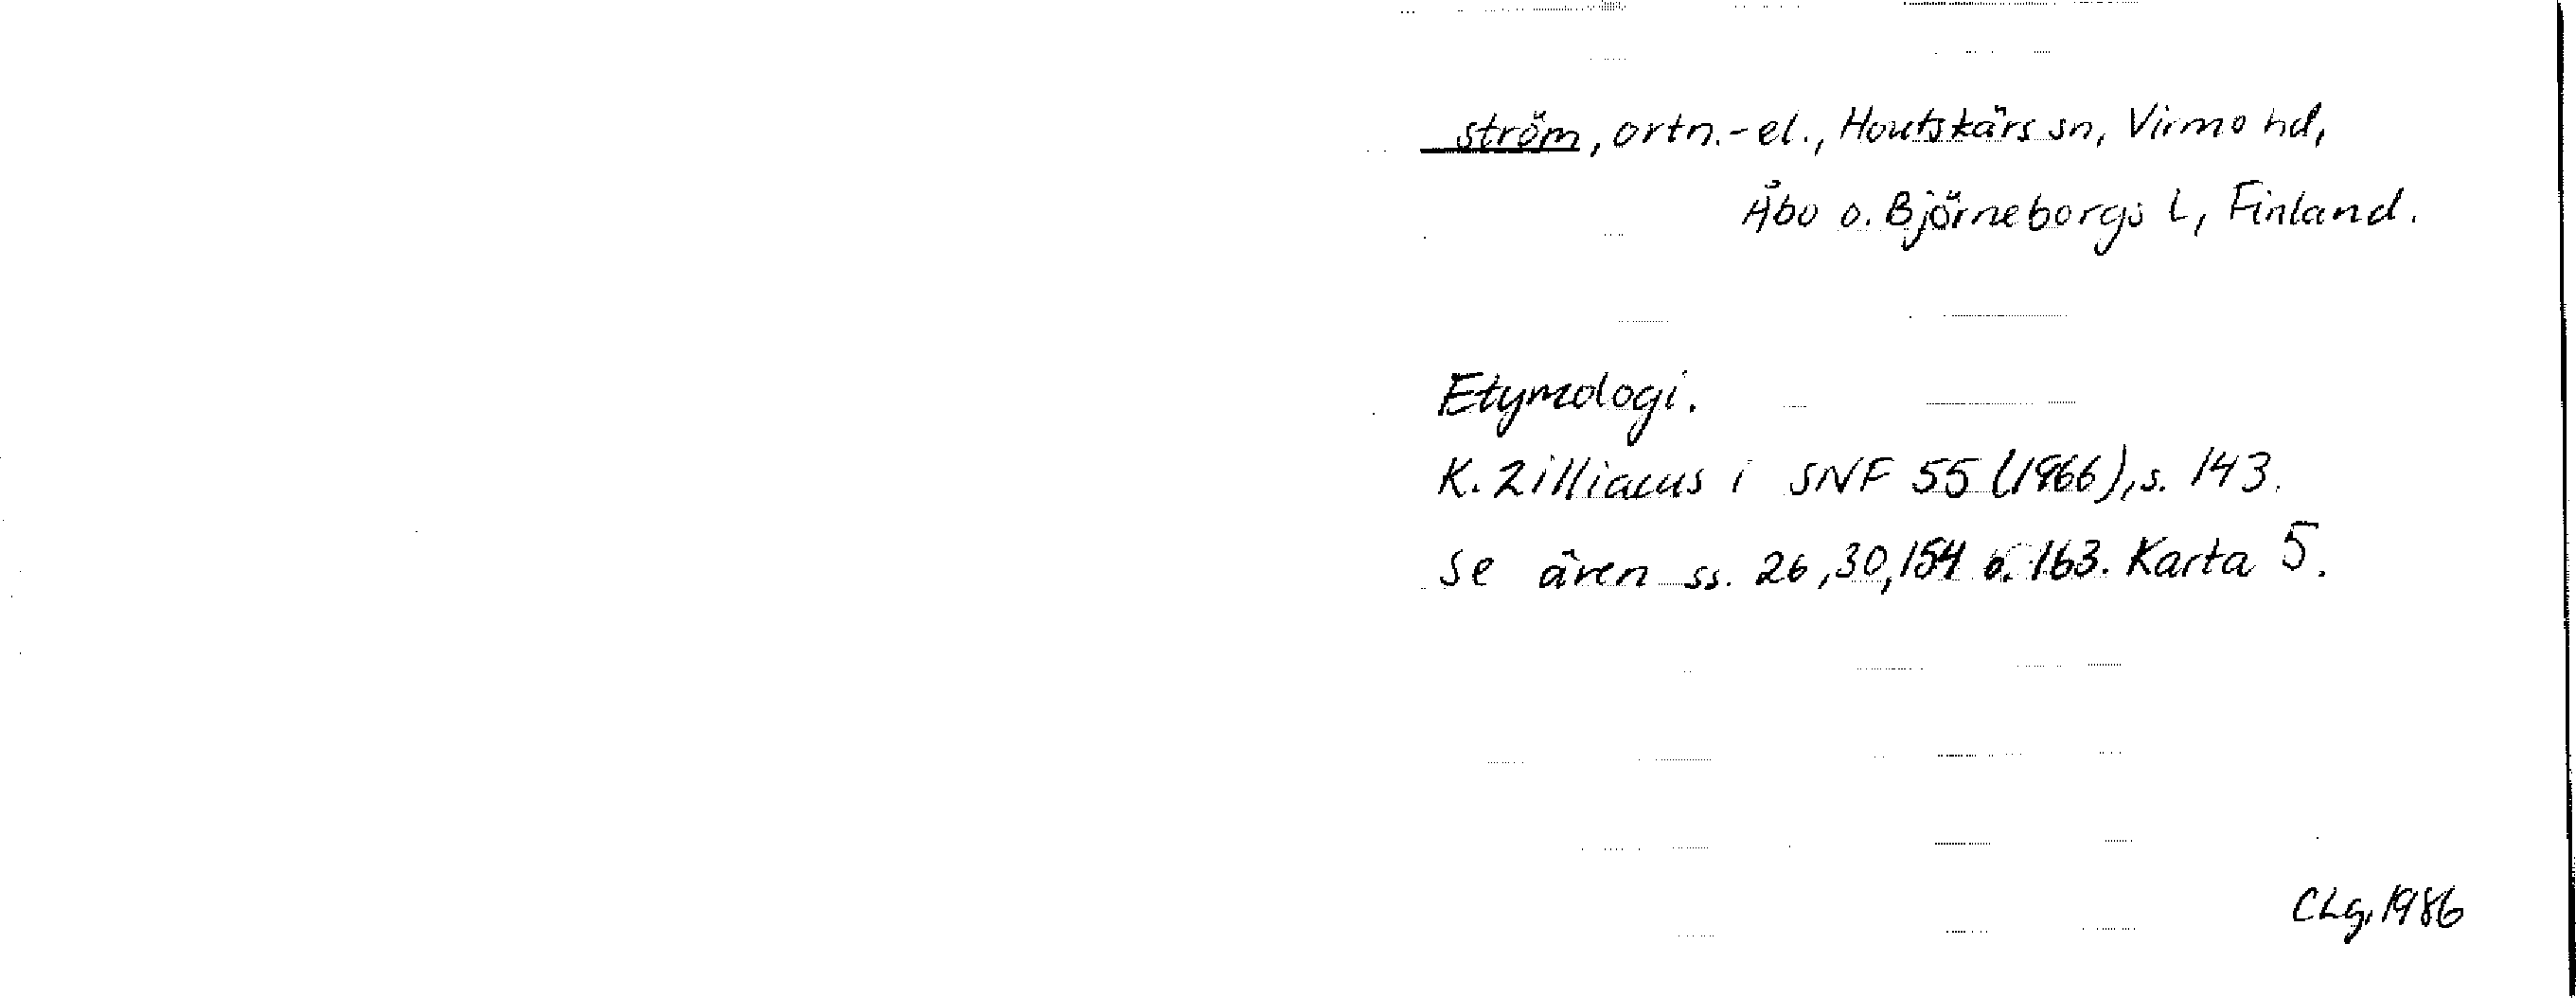 ström, ortn.-el., Houtskärs sn, Virmo hd,
Åbo o. Björneborgs L, Finland.
Etymologi.
K. Zilliacus i SNF 55 (1966), s. 143.
Se även ss. 26, 30, 154 o. 163. Karta 5.
CLg, 1986